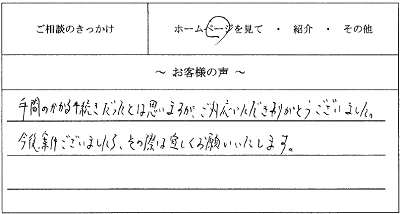 ご相談のきっかけ
ホームページを見て ・ 紹介 ・ その他
～ お客様の声 ～
手間のかかる手続きだったとは思いますが、ご対応いただきありがとうございました。
今後案件ございましたら、その際は宜しくお願いいたします。